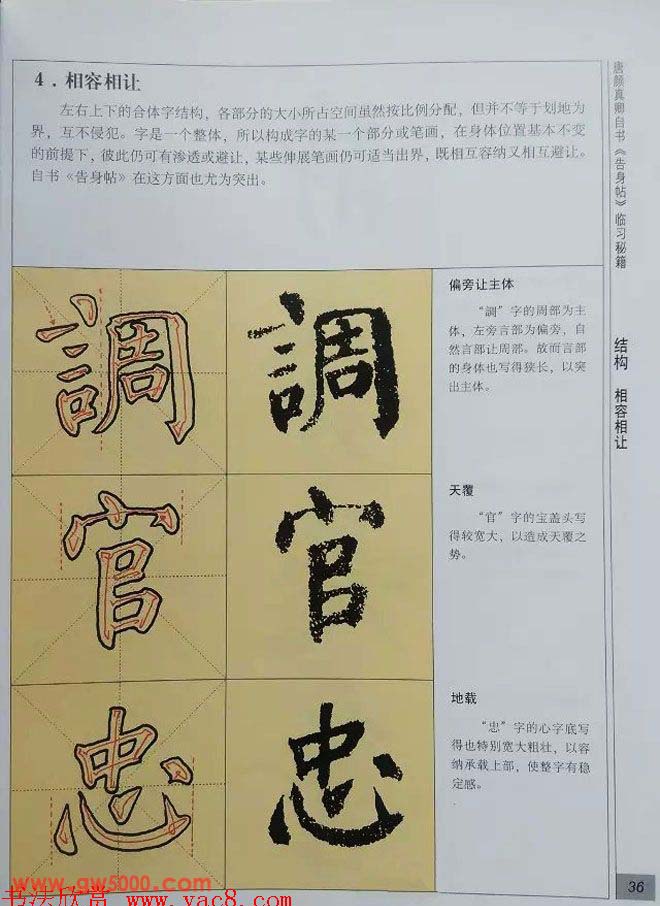 4．相容相让
左右上下的合体字结构，各部分的大小所占空间虽然按比例分配，但并不等于划地为
界，互不侵犯。字是一个整体，所以构成字的某一个部分或笔画，在身体位置基本不变
的前提下，彼此仍可有渗透或避让，某些伸展笔画仍可适当出界，既相互容纳又相互避让。
自书《告身帖》在这方面也尤为突出。
唐颜真卿自书《告身帖》临习秘籍
结构 相容相让
調
調
偏旁让主体
“調”字的周部为主
体，左旁言部为偏旁，自
然言部让周部。故而言部
的身体也写得狭长，以突
出主体。
官
官
天覆
“官”字的宝盖头写
得较宽大，以造成天覆之
势。
忠
忠
地载
“忠”字的心字底写
得也特别宽大粗壮，以容
纳承载上部，使整字有稳
定感。
36
www.gw5000.com
书法欣赏 www.yac8.com